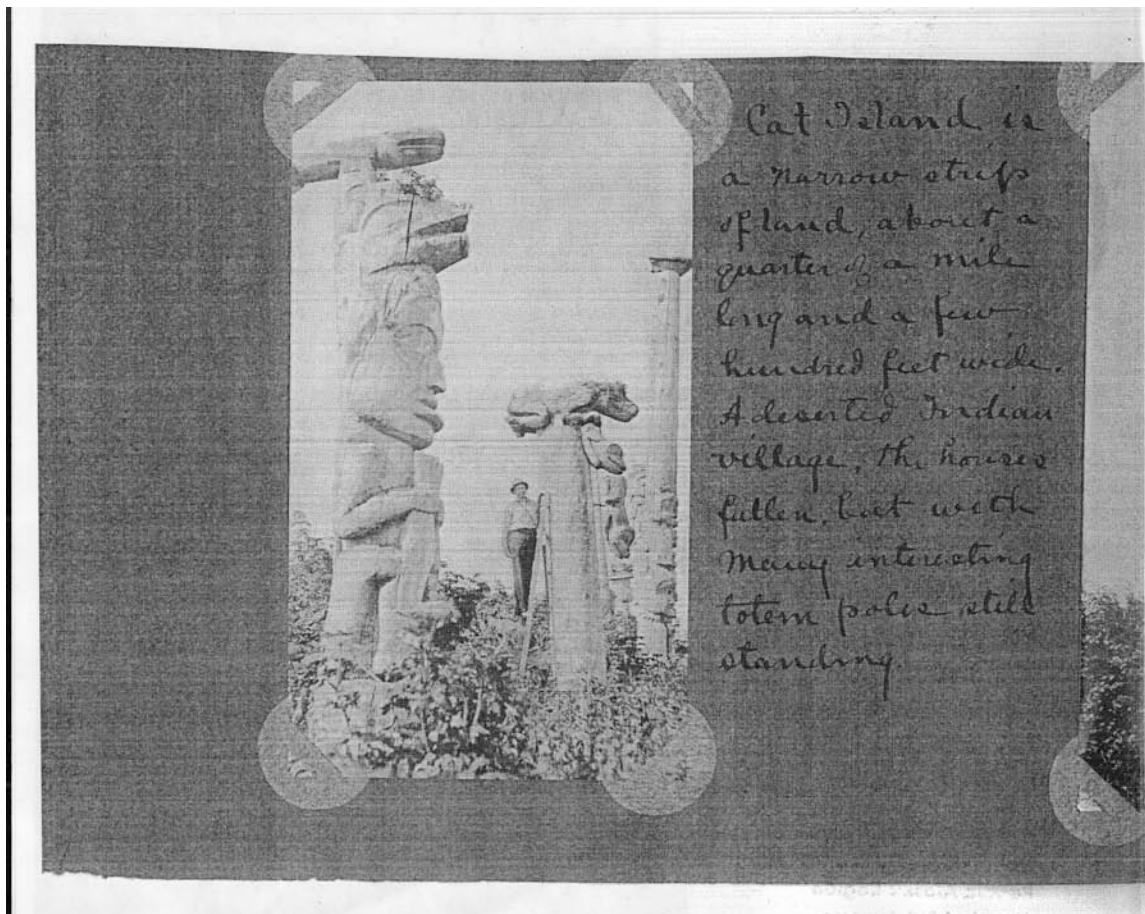 Cat Island is
a narrow strip
of land, about a
quarter of a mile
long and a few
hundred feet wide.
A deserted Indian
village, the houses
fallen, but with
many interesting
totem poles still
standing.